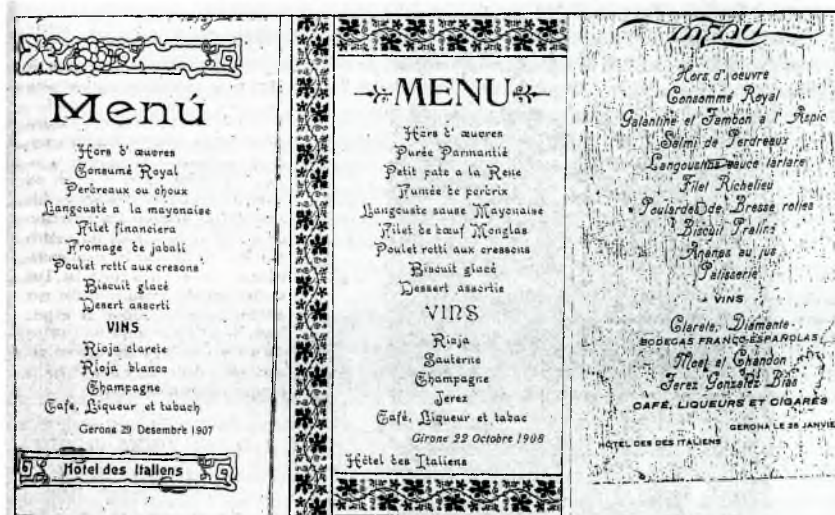 Menú
Hors d' œuvres
Consumé Royal
Perdreaux ou choux
Langouste a la mayonaise
Filet financiera
Fromage de jabali
Poulet rotti aux cresons
Biscuit glacé
Desert assorti
VINS
Rioja clarete
Rioja blanco
Champagne
Café, Liqueur et tubach
Gerone 29 Desembre 1907
Hotel des Italiens
MENU
Hors d' œuvres
Purée Parmantié
Petit pate a la Rene
Fumée de perdrix
Langouste sause Mayonaise
Filet de bœuf Monglas
Poulet rotti aux cressons
Biscuit glacé
Dessert assortie
VINS
Rioja
Sauterne
Champagne
Jerez
Café, Liqueur et tabac
Girone 22 Octobre 1908
Hôtel des Italiens
menu
Hors d' oeuvre
Consommé Royal
Galantine et Jambon a l' Aspic
Salmi de Perdreaux
Langoustins sauce tartare
Filet Richelieu
Poulardes de Bresse roties
Biscuit Pralins
Ananas au jus
Patisserie
VINS
Clarete, Diamante
BODEGAS FRANCO-ESPAÑOLAS
Moet et Chandon
Jerez Gonzalez Bias
CAFÉ, LIQUEURS ET CIGARES
GERONA LE 26 JANVIE
HÔTEL DES DES ITALIENS